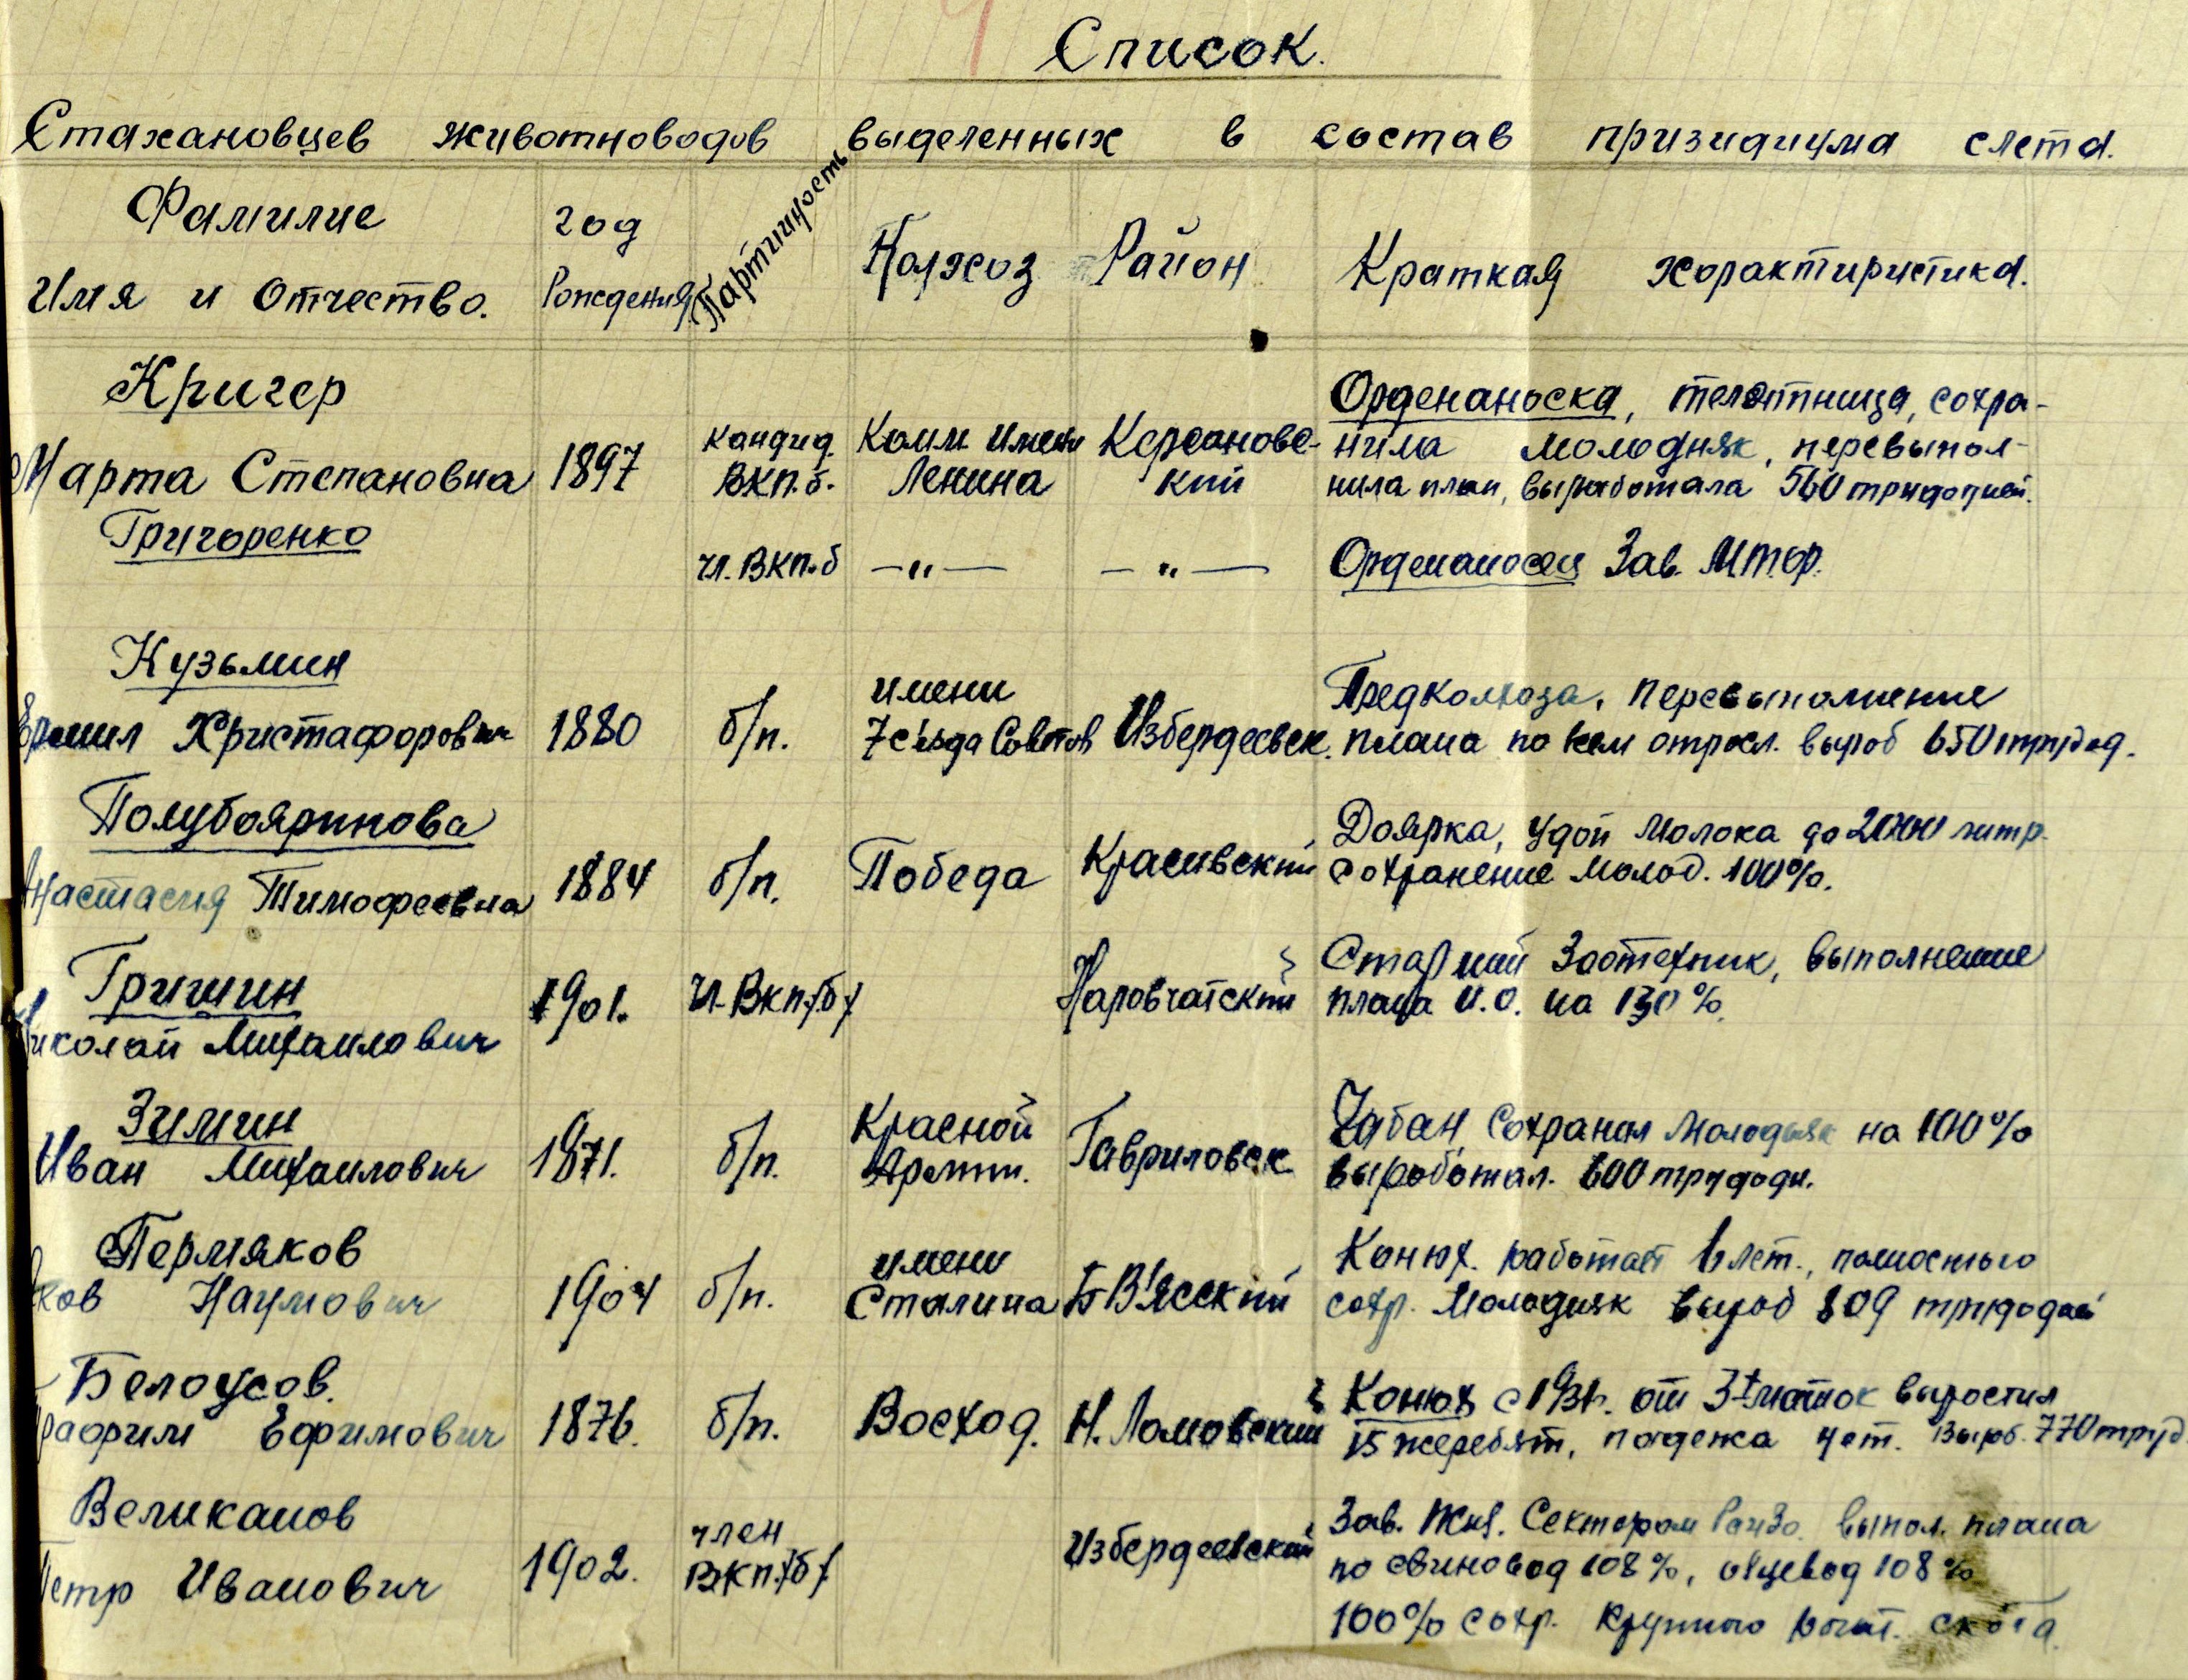 Список.
Стахановцев животноводов выделенных в состав призидиума слета.
Фамилие
Имя и Отчество.
год
Рождения
Партийность
Колхоз
Район
Краткая характиристика.
Кригер
Марта Степановна
1897
кандид.
ВКП.б.
Комм имени
Ленина
Керсановс-
кий
Орденаноска, телятница, сохра-
нила молодняк, перевыпол-
нила план, выработала 560 трудодней.
Григоренко
чл. ВКП.б
—"—
—"—
Орденаносец Зав. М.т.ф.
Кузьмин
Ермил Христафорович
1880
б/п.
имени
7 с'езда Советов
Избердеевск.
Предколхоза, перевыполнение
плана по всем отросл. выроб 650 трудод.
Полубояринова
Анастасия Тимофеевна
1884
б/п.
Победа
Красивский
Доярка, удой молока до 2000 литр.
сохранение молод. 100%.
Гришин
Николай Михаилович
1901.
чл. Вкп/б/
Наровчатский
Старший Зоотехник, выполнение
плана И.О. на 130%.
Зимин
Иван Михаилович
1871.
б/п.
Красной
Армии.
Гавриловск
Чабан, Сохранил молодняк на 100%
выработал. 600 трудодн.
Пермяков
Яков Наумович
1904
б/п.
имени
Сталина
Б В'ясский
Конюх. работает 6 лет., полностью
сохр. Молодняк выроб 809 трудодней
Белоусов.
Ефимович
1876.
б/п.
Восход.
Н. Ломовский
Конюх с 1931. от 3х маток выростил
15 жеребят, падежа нет. Выроб. 770 труд.
Великанов
Петр Иванович
1902.
член
ВКП./б/
Избердеевский
Зав. Жив. Сектором РайЗо. выпол. плана
по свиновод 108%, овцевод 108%
100% сохр. крупного рогат. скота.